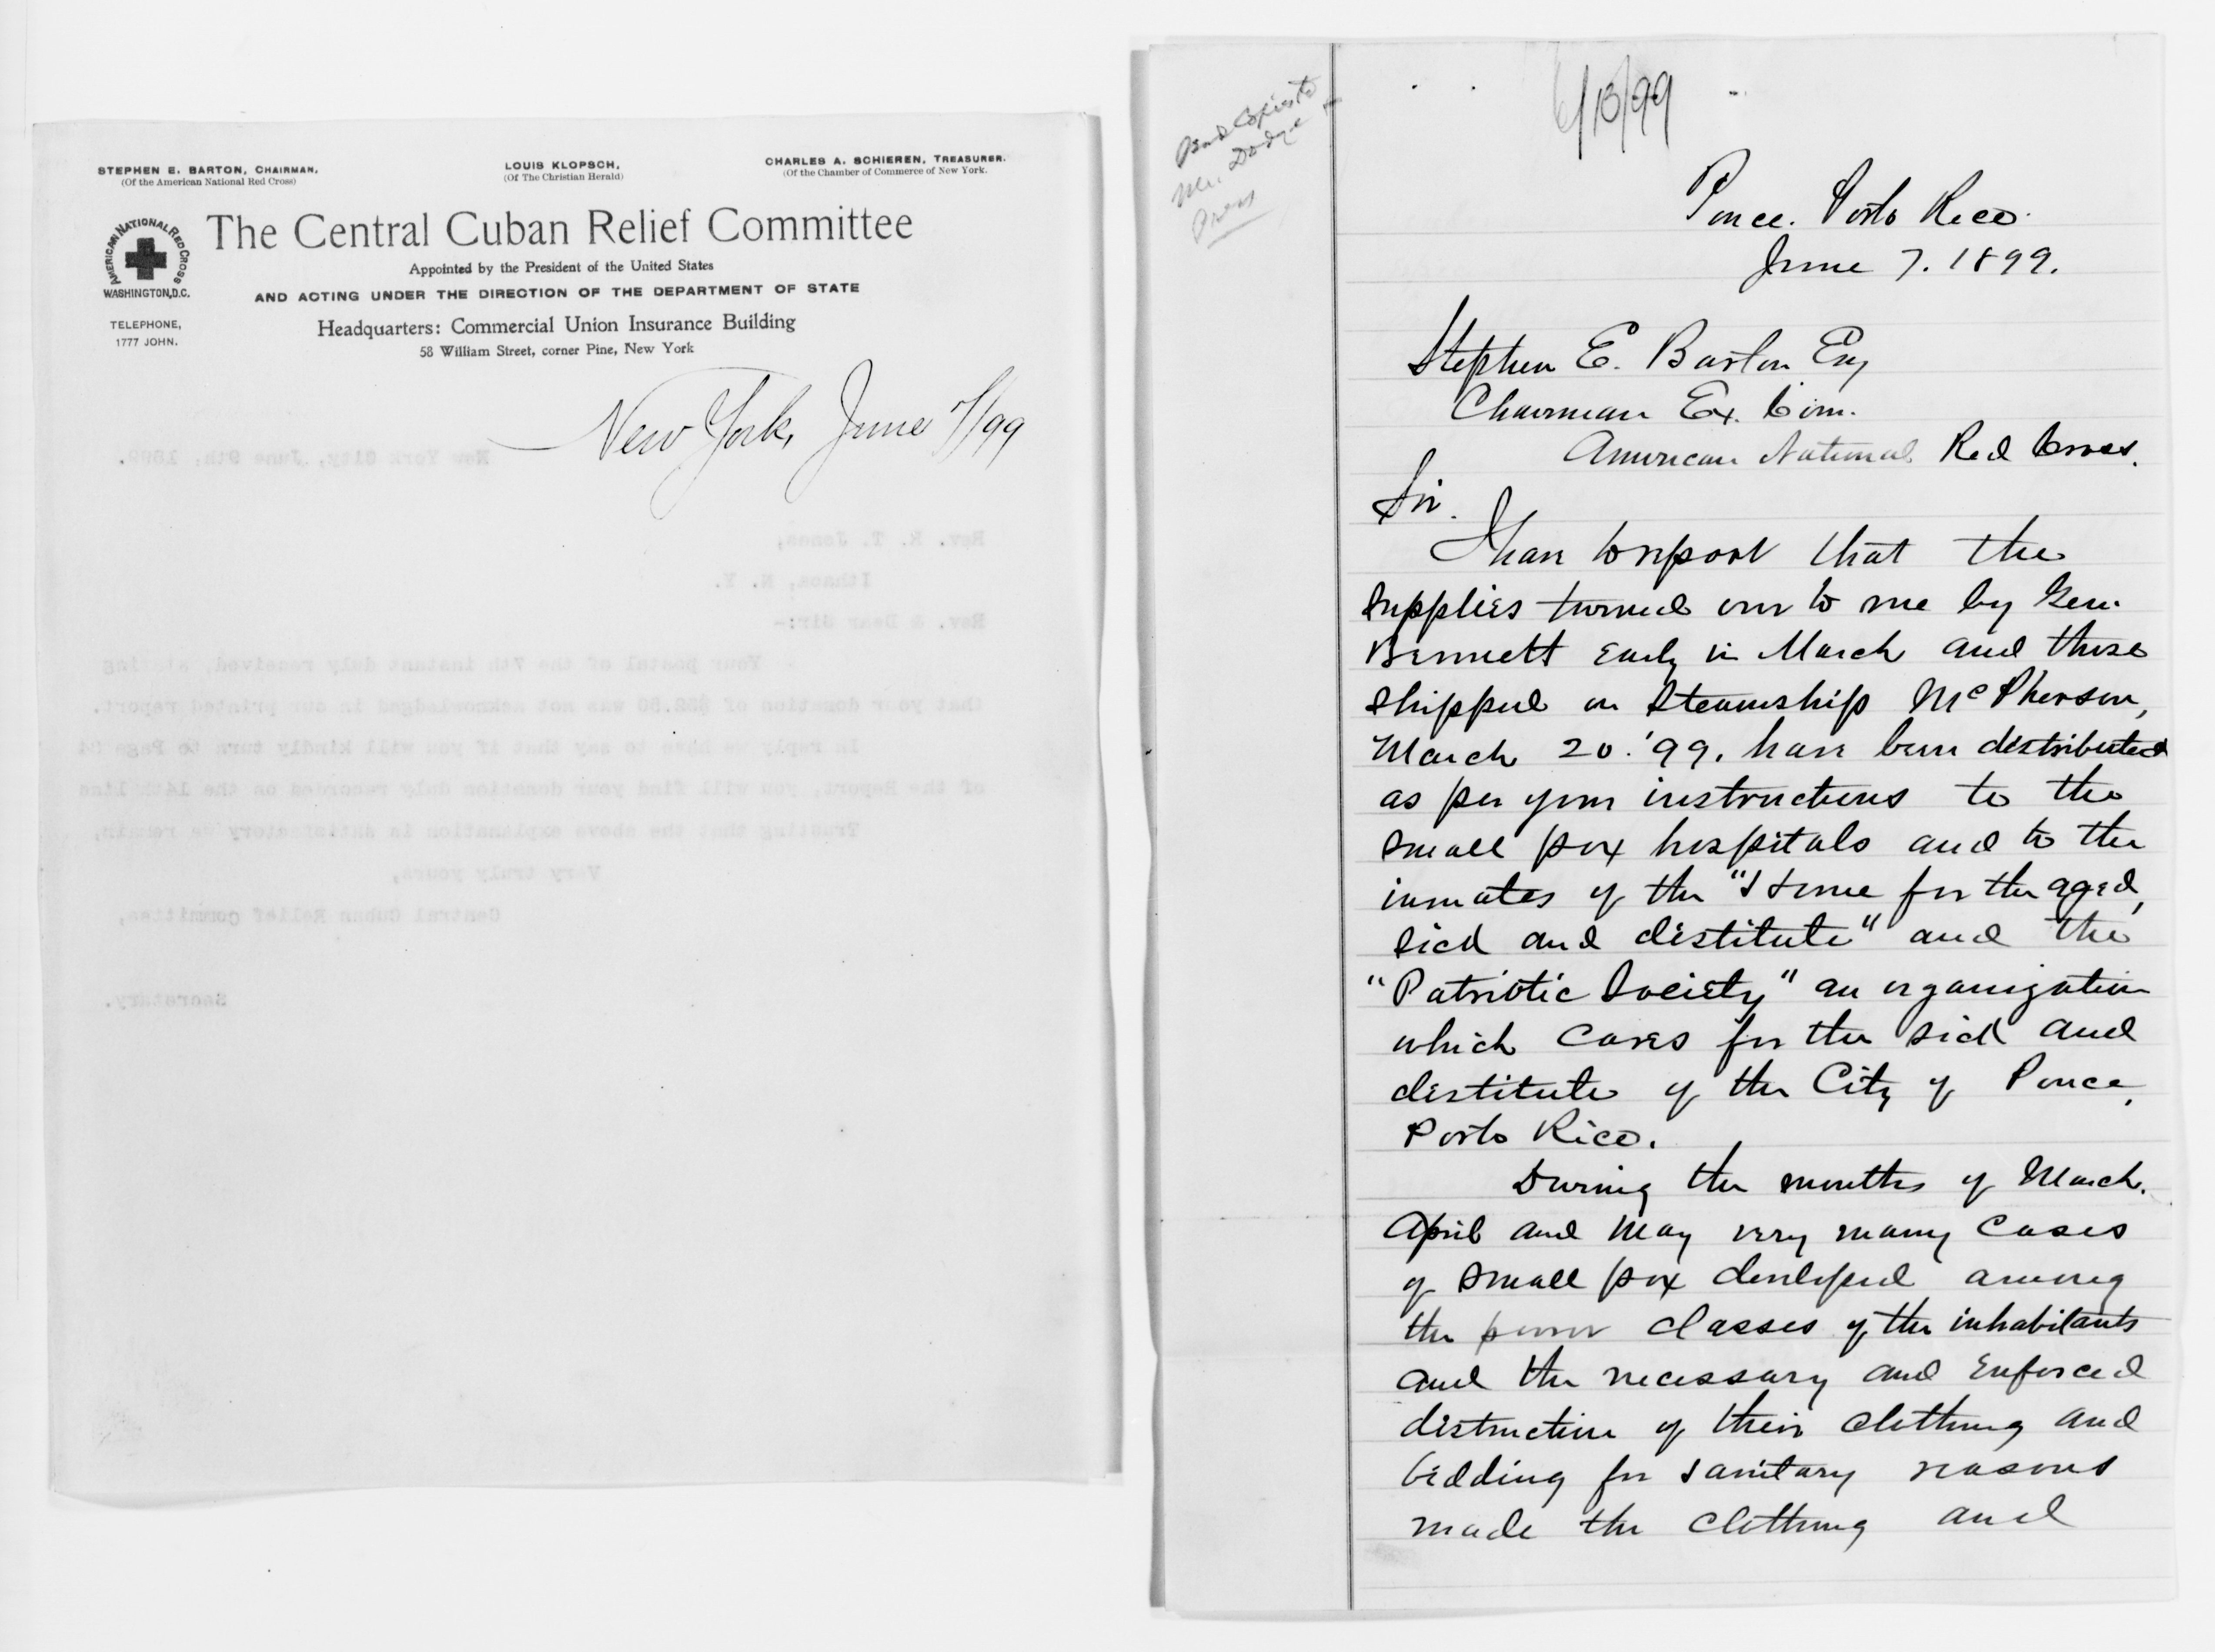 STEPHEN E. BARTON, CHAIRMAN,
(Of the American National Red Cross)
LOUIS KLOPSCH,
(Of The Christian Herald)
CHARLES A. SCHIEREN, TREASURER.
(Of the Chamber of Commerce of New York.
AMERICAN NATIONAL RED CROSS
WASHINGTON, D.C.
TELEPHONE,
1777 JOHN.
The Central Cuban Relief Committee
Appointed by the President of the United States
AND ACTING UNDER THE DIRECTION OF THE DEPARTMENT OF STATE
Headquarters: Commercial Union Insurance Building
58 William Street, corner Pine, New York
New York, June 7/99
New York City, June 9th, 1899.
Rev. K. T. Jones,
Ithaca, N. Y.
Rev. & Dear Sir:-
Your postal of the 7th instant duly received, stating
that your donation of was not acknowledged in our printed report.
In reply we have to say that if you will kindly turn to Page
of the Report, you will find your donation duly recorded on the 14th line
Trusting that the above explanation is satisfactory we remain,
Very truly yours,
Central Cuban Relief Committee,
Secretary.
Send Copies to
Mr. Dodge +
Press
6/13/99
Ponce. Porto Rico.
June 7. 1899.
Stephen E. Barton Esq
Chairman Ex. Com.
American National Red Cross.
Sir.
I have to report that the
supplies turned over to me by Gen.
Bennett early in March and those
shipped on Steamship McPherson,
March 20. '99. have been distributed
as per your instructions to the
small pox hospitals and to the
inmates of the "Home for the aged,
sick and destitute" and the
"Patriotic Society" an organization
which cares for the sick and
destitute of the City of Ponce,
Porto Rico.
During the months of March.
April and May very many cases
of small pox developed among
the poorer classes of the inhabitants
and the necessary and enforced
distruction of their clothing and
bedding for sanitary reasons
made the clothing and